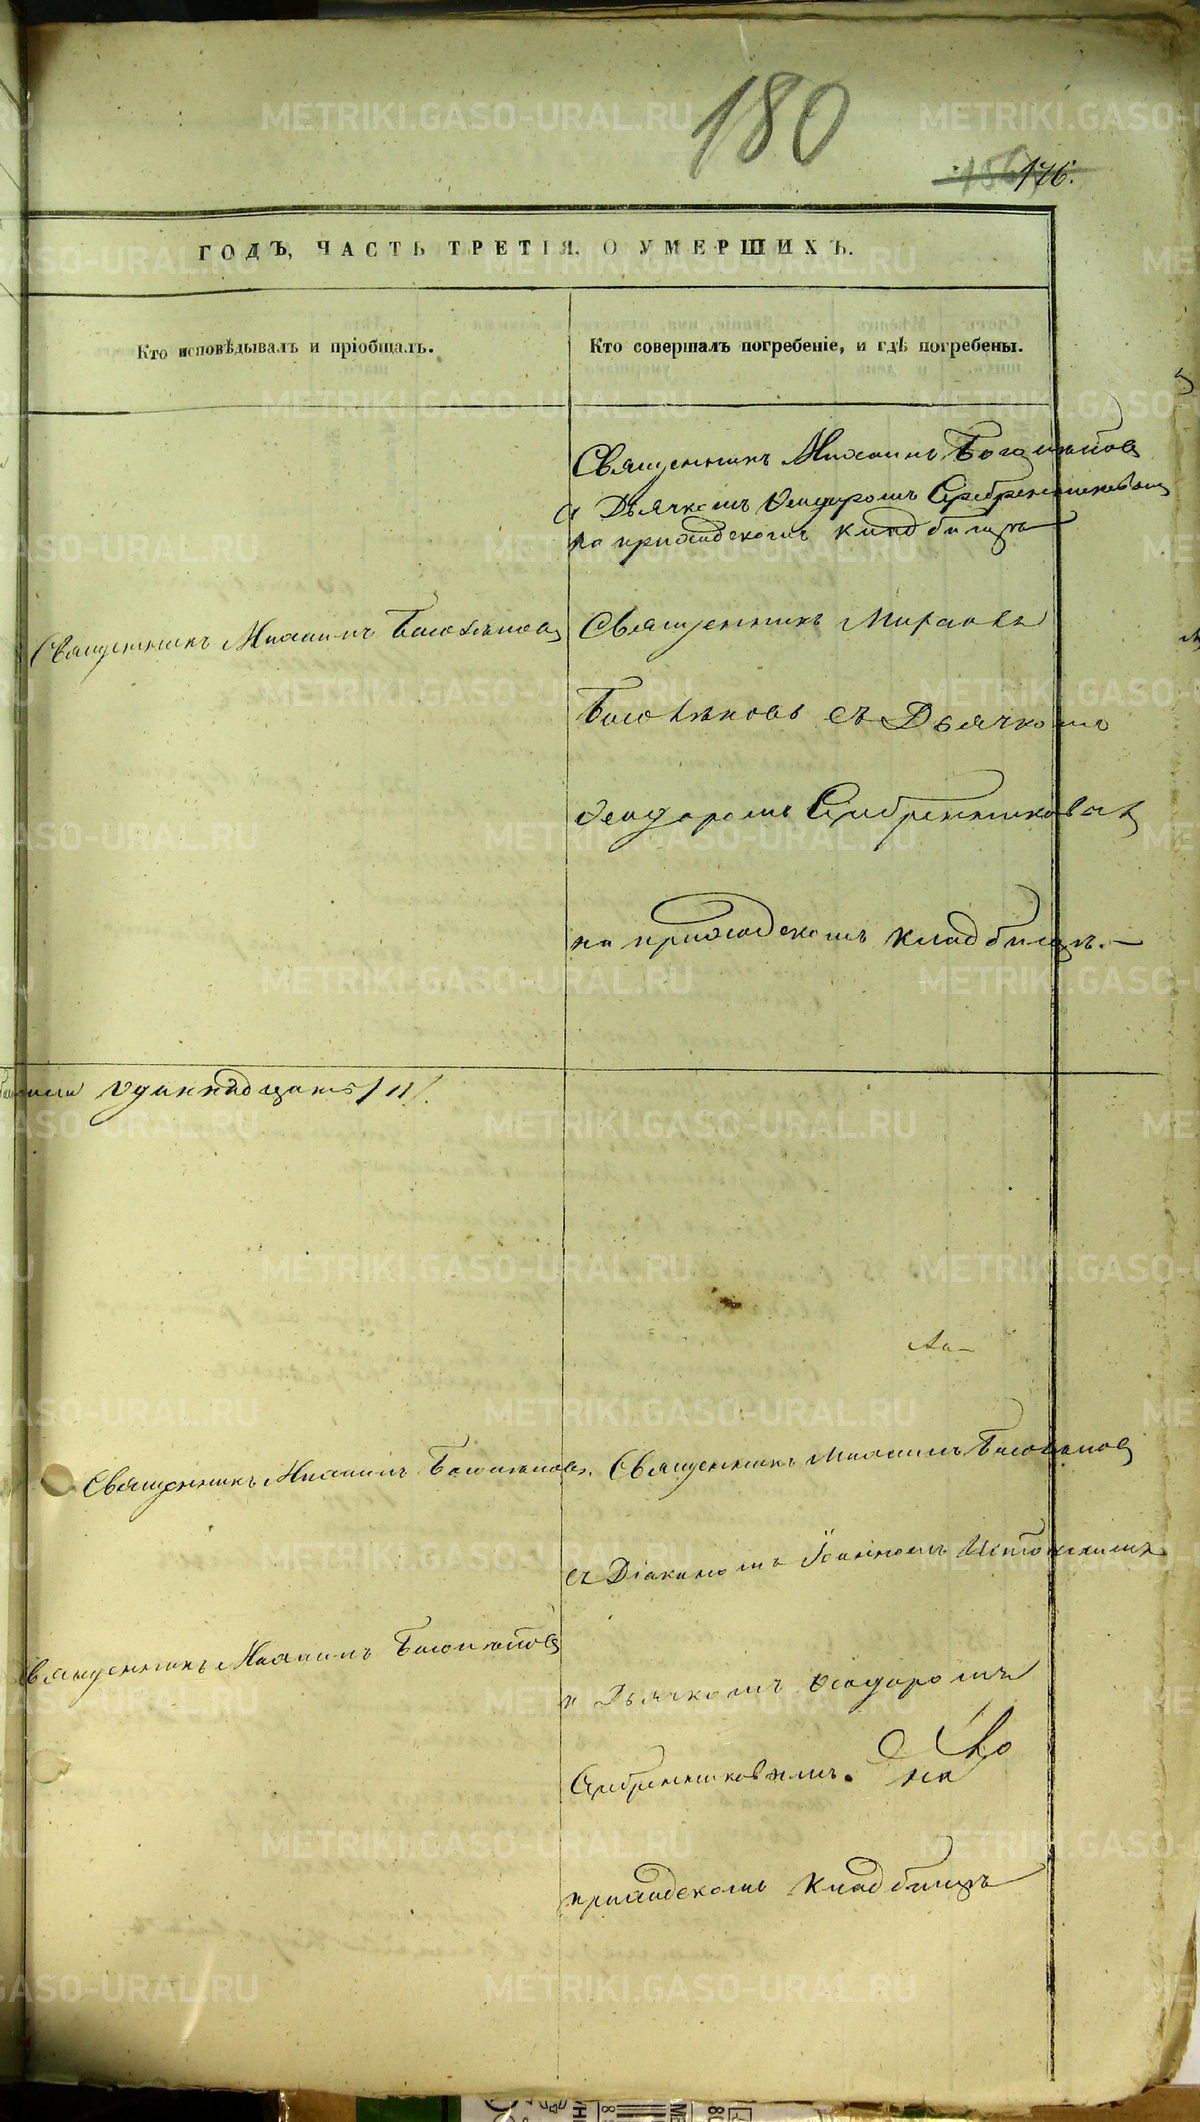 180
176.
ГОДЪ, ЧАСТЬ ТРЕТІЯ, О УМЕРШИХЪ.
Кто исповѣдывалъ и пріобщалъ.
Кто совершалъ погребеніе, и гдѣ погребены.
Священникъ Михаилъ
съ Дьячкомъ Ѳеодоромъ Серебренниковым
на приходскомъ кладбищѣ
Священникъ Михаилъ
Священникъ
съ Дьячкомъ
Ѳеодоромъ Серебренниковым
на приходскомъ кладбищѣ.—
одиннадцать /11/.
Священникъ Михаилъ
Священникъ Михаилъ
съ Діакономъ Іоанномъ
Священникъ Михаилъ
и Дьячкомъ Ѳеодоромъ
Серебренниковымъ. на
приходскомъ кладбищѣ
METRIKI.GASO-URAL.RU